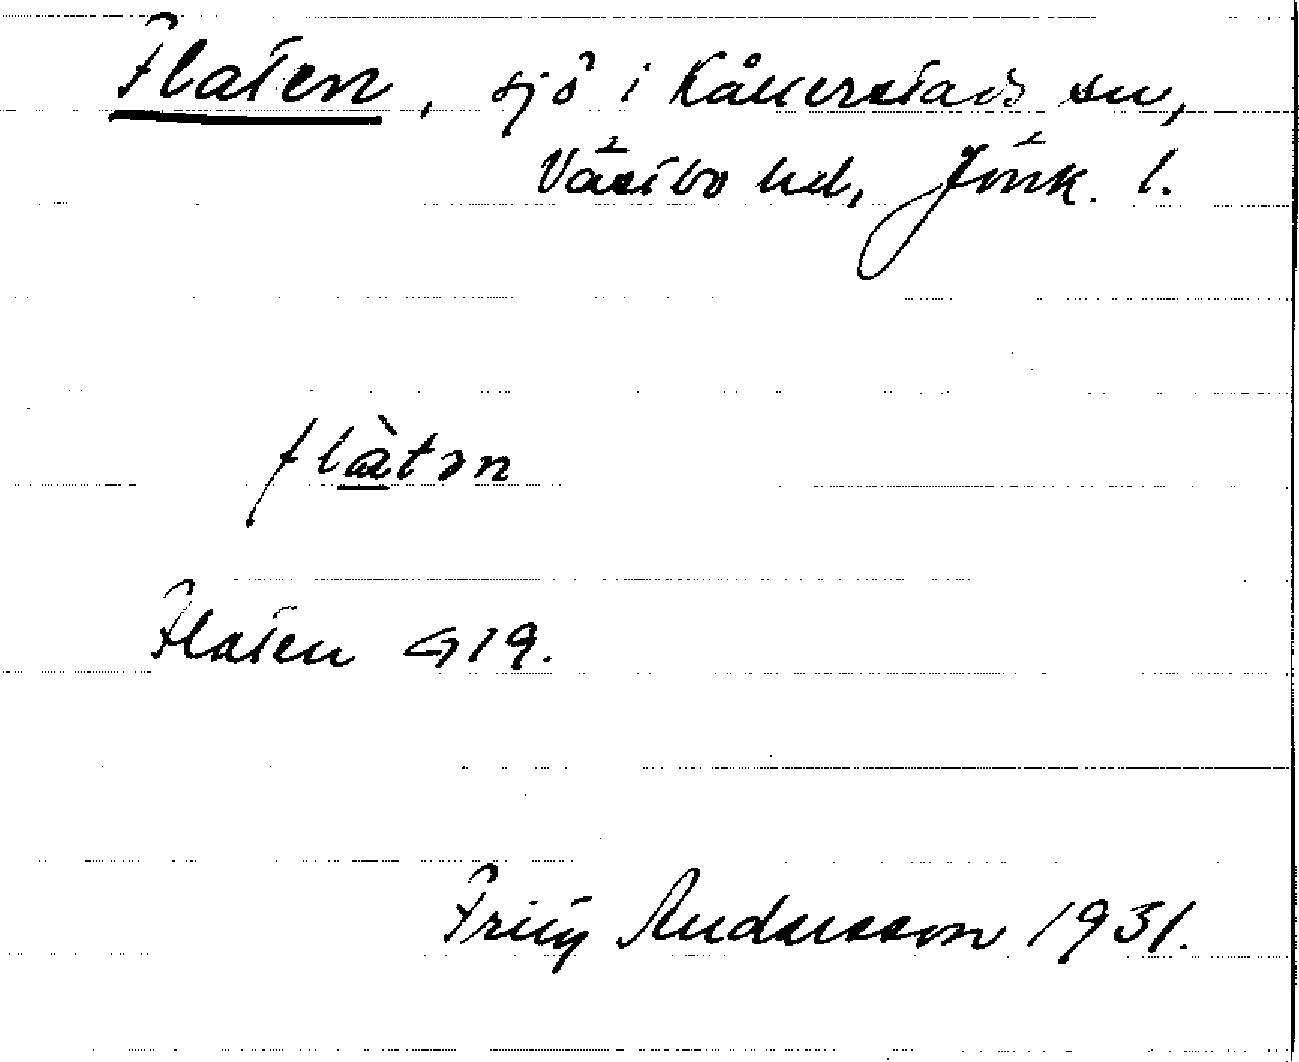 Flaten, sjö i Kållerstads sn,
Västbo hd, Jönk. l.
flàtən
Flaten G19.
Frity Andersson 1931.